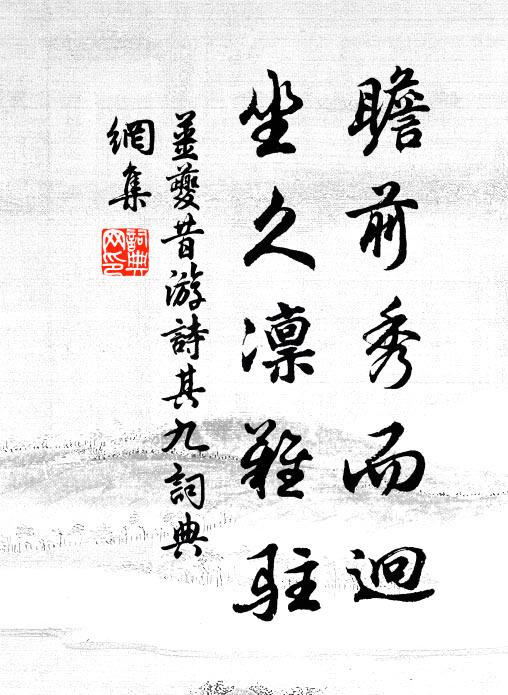 瞻前秀而迴
坐久凛難駐
姜夔昔游詩其九詞典
網集
詞典
网印